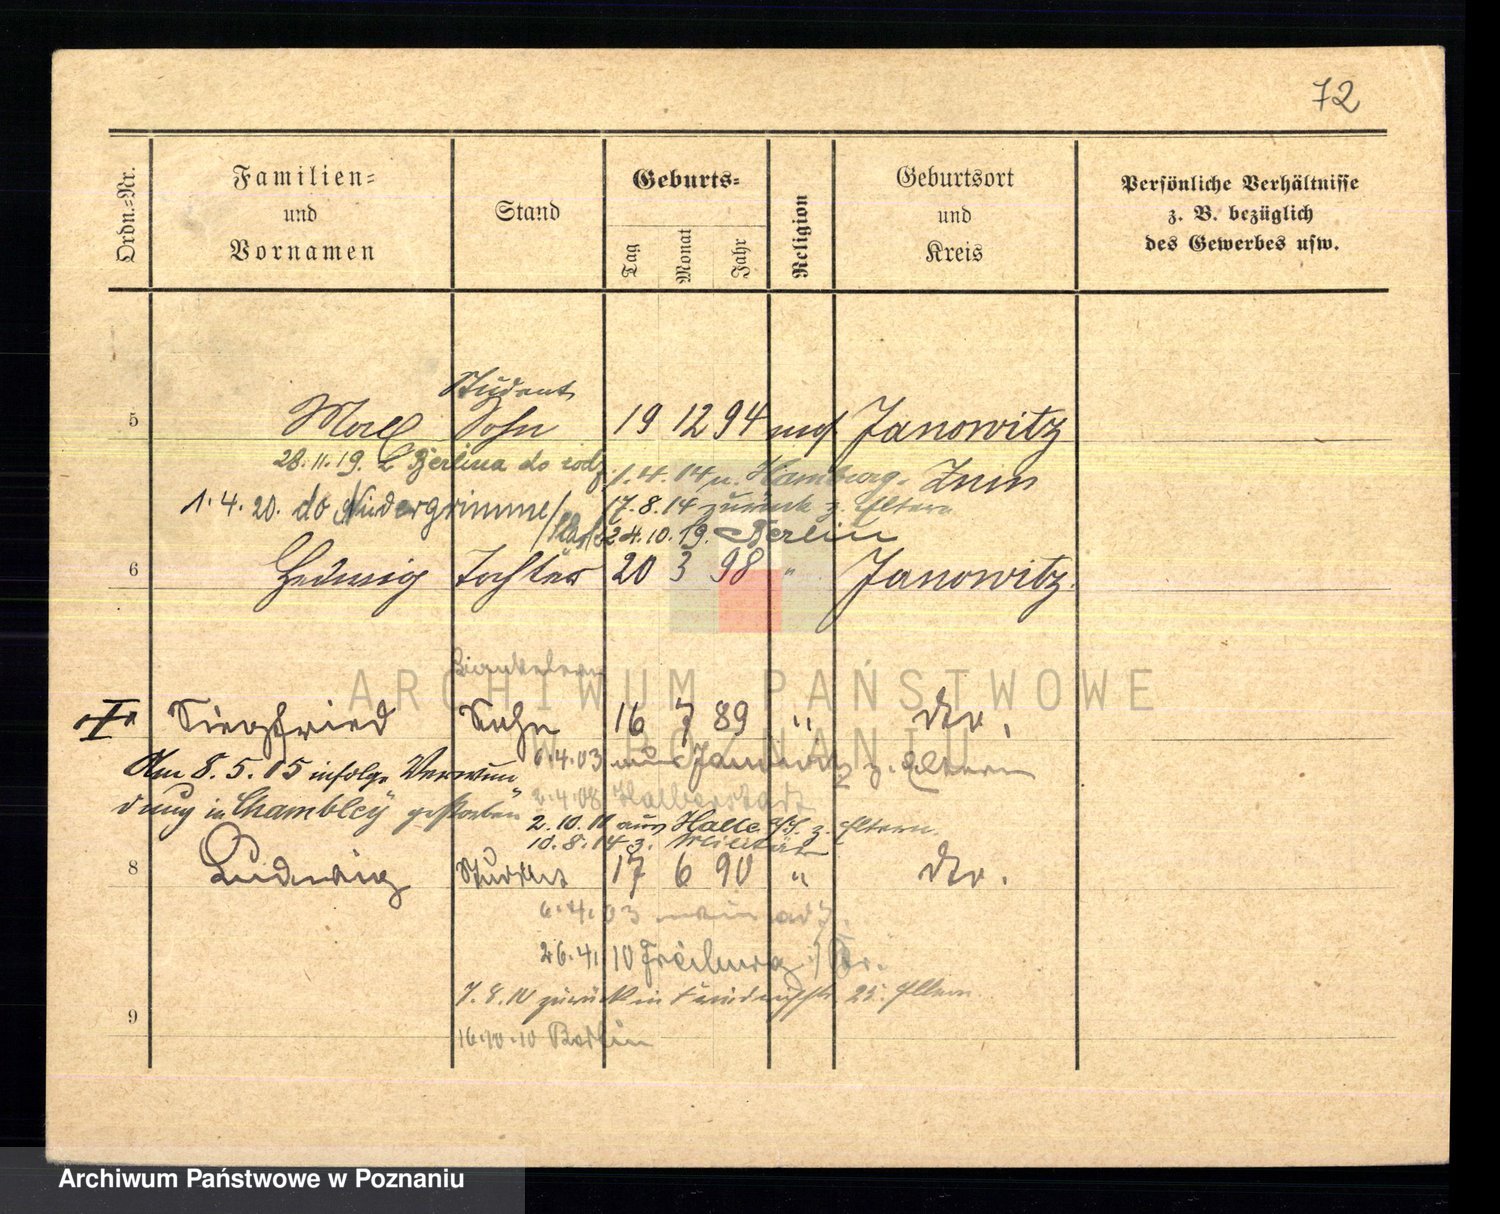 72
Ordn.-Nr.
Familien-
und
Vornamen
Stand
Geburts-
Tag
Monat
Jahr
Religion
Geburtsort
und
Kreis
Persönliche Verhältnisse
z. B. bezüglich
des Gewerbes usw.
Student
5 Sohn 19 12 94 mos. Janowitz
28.11.19. z Berlina do rodz. 1.4.14 n. Hamburg. Znin
1.4.20. do 17.8.14 zurück z. Eltern
24.10.19. Berlin
6 Hedwig Tochter 20 3 98 " Janowitz.
ARCHIWUM PAŃSTWOWE
W POZNANIU
Siegfried Sohn 16 7 89 " dto.
Am 8.5.15 infolge Verwun 6.4.03 aus Janowitz z. Eltern
dung in Chambley gestorben 2.4.08 Halberstadt
2.10.11 aus Halle z. Eltern.
10.8.14 z. Militär
8 Ludwig Student 17 6 90 " dto.
6.4.03
26.4.10 Freiburg i/Br.
7.8.10 zurück in 25. Eltern
9
16.10.10 Berlin
Archiwum Państwowe w Poznaniu